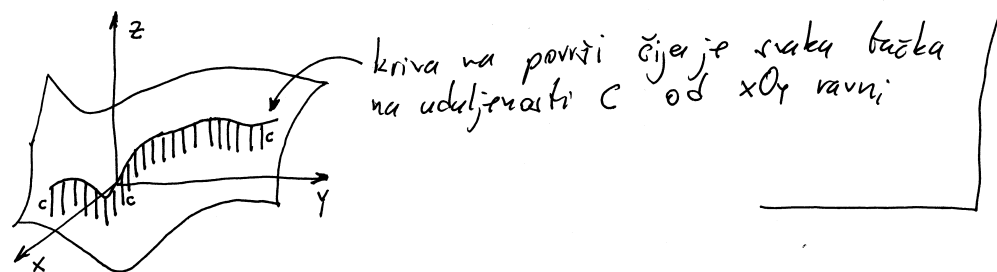 z
kriva na površi čija je svaka tačka
na udaljenosti C od xOy ravni
c
c
c
y
x